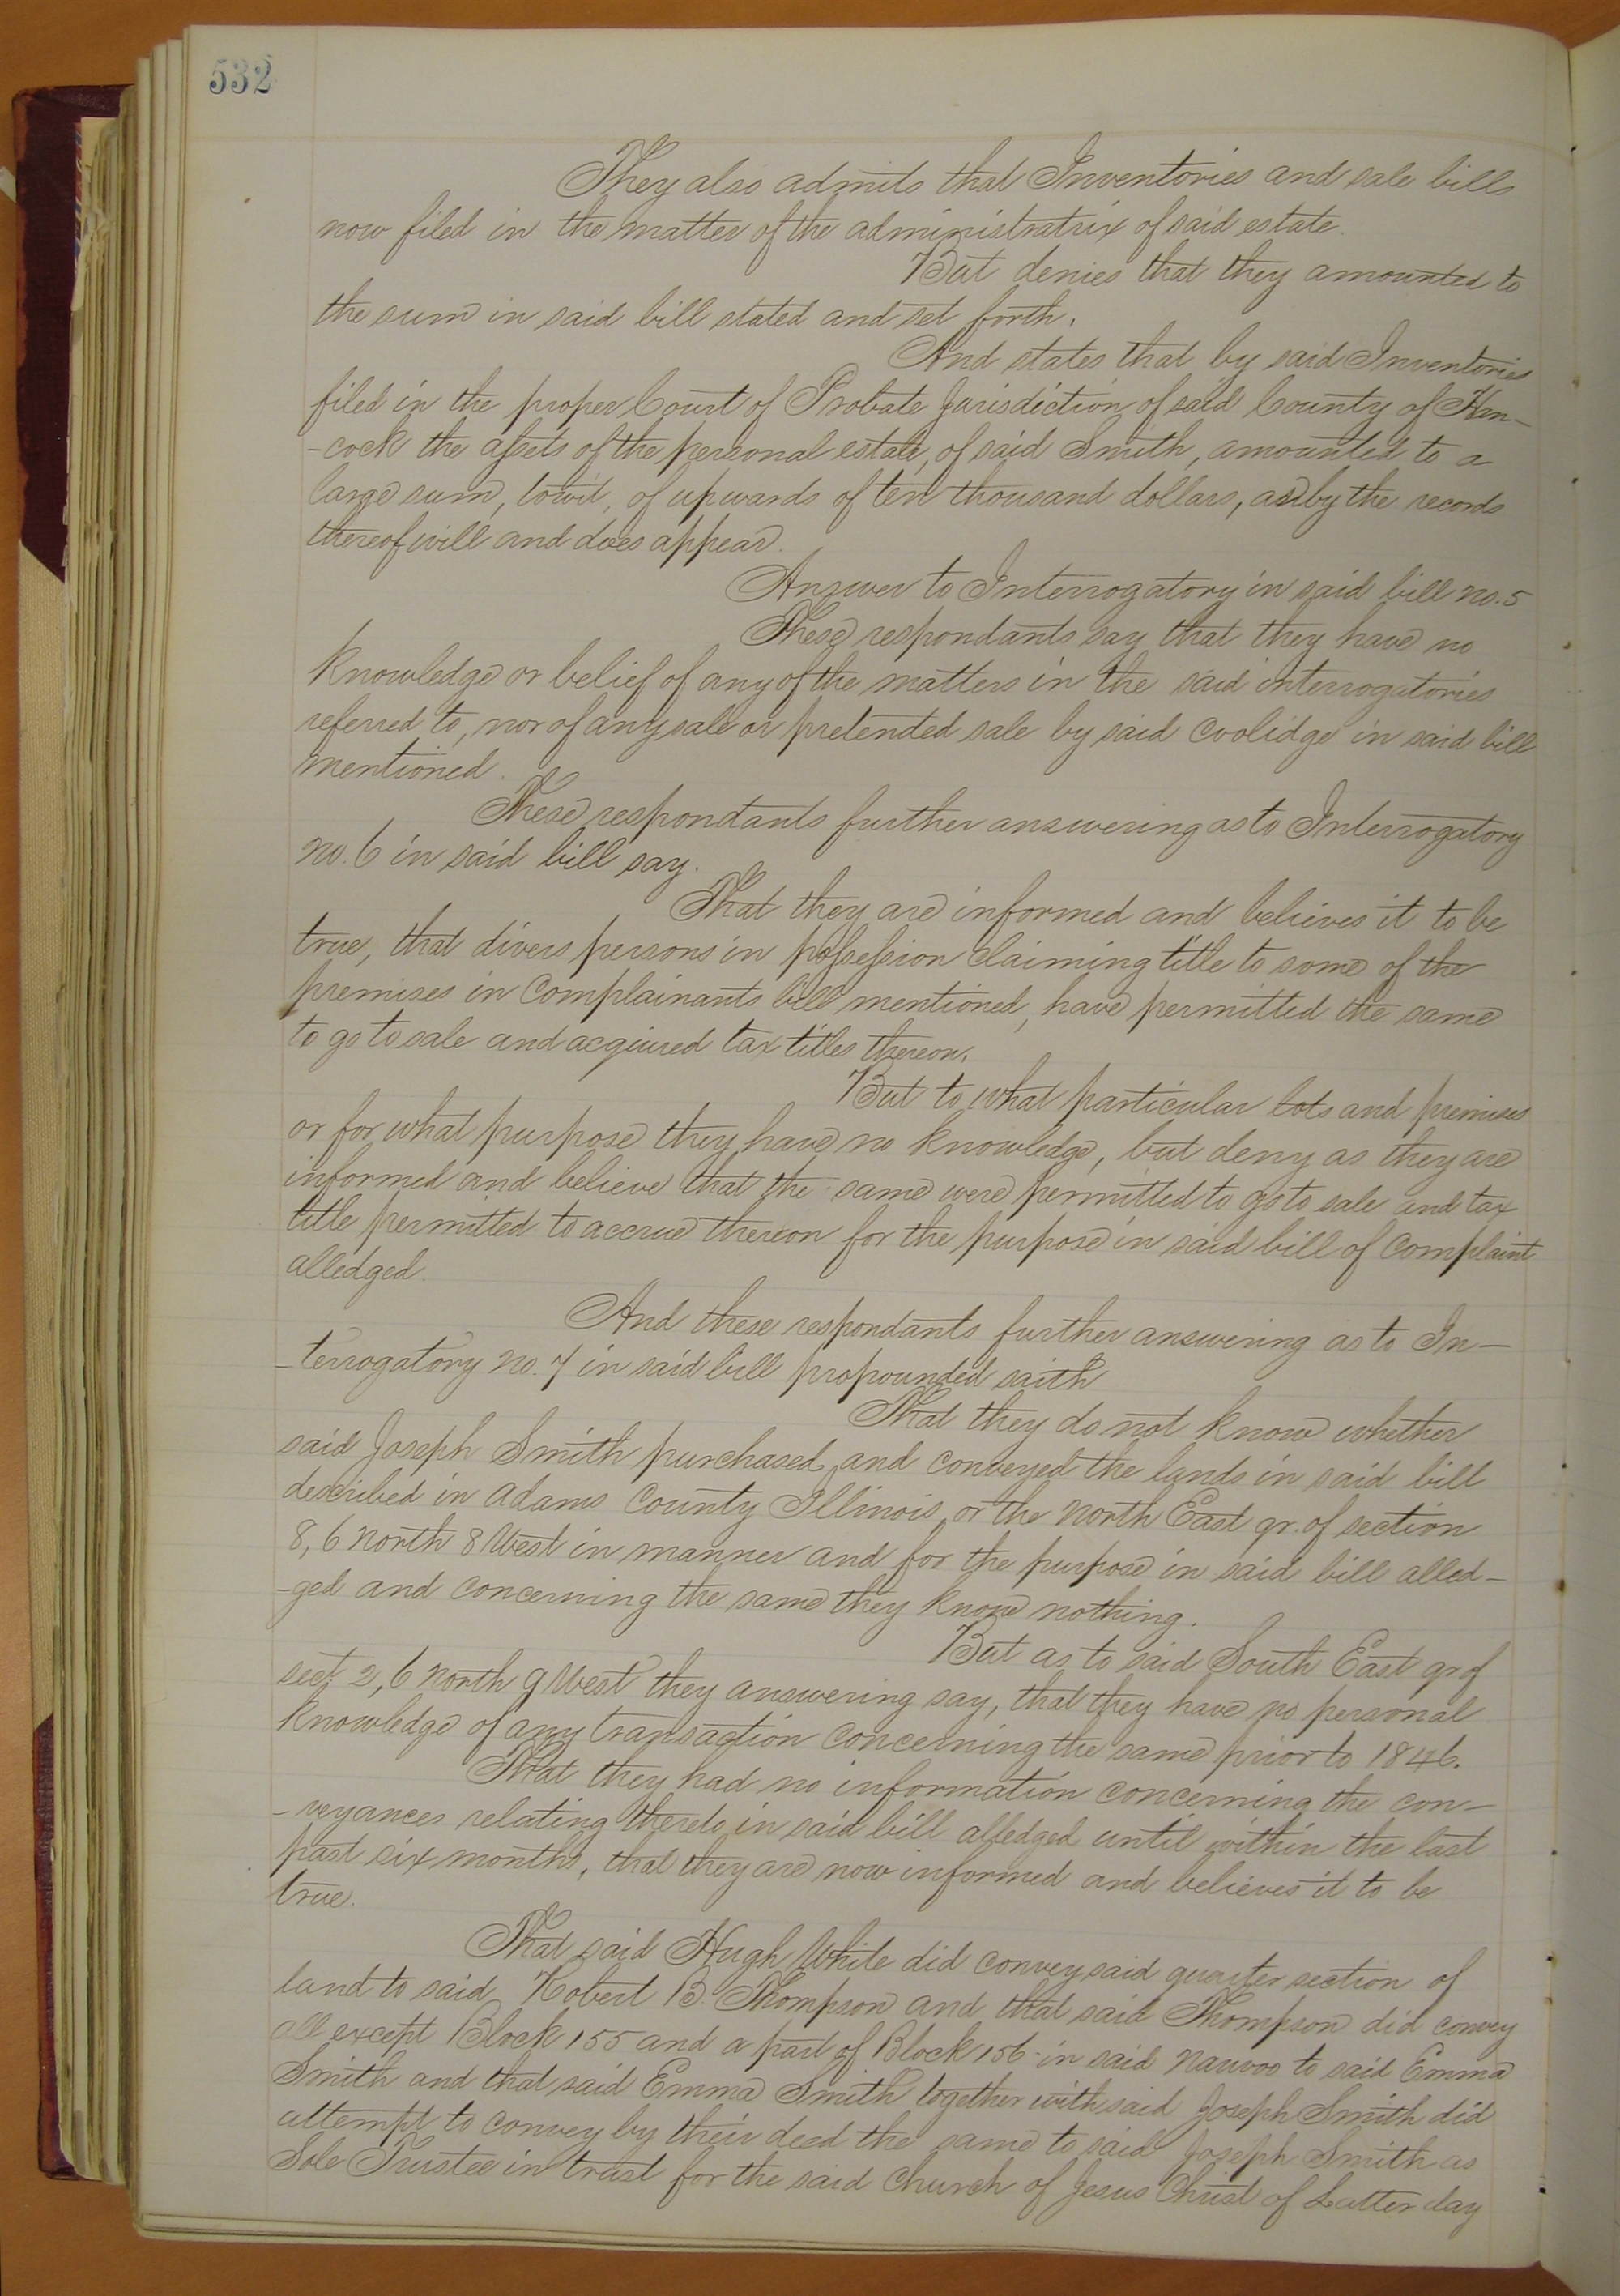 532
They also admits that Inventories and sale bills
now filed in the matter of the administratrix of said estate.
But denies that they amounted to
the sum in said bill stated and set forth.
And states that by said Inventories
filed in the proper Court of Probate Jurisdiction of said County of Han-
-cock the assets of the personal estate, of said Smith, amounted to a
large sum, towit, of upwards of ten thousand dollars, as by the records
thereof will and does appear.
Answer to Interrogatory in said bill no. 5
These respondants say that they have no
knowledge or belief of any of the matters in the said interrogatories
referred to, nor of any sale or pretended sale by said Coolidge in said bill
mentioned.
These respondants further answering as to Interrogatory
no. 6 in said bill say.
That they are informed and believes it to be
true, that divers persons in possession claiming title to some of the
premises in Complainants bill mentioned, have permitted the same
to go to sale and acquired tax titles thereon.
But to what particular lots and premises
or for what purpose they have no knowledge, but deny as they are
informed and believe that the same were permitted to go to sale and tax
title permitted to accrue thereon for the purpose in said bill of Complaint
alledged.
And these respondants further answering as to In-
-terrogatory no. 7 in said bill propounded saith
That they do not know whether
said Joseph Smith purchased and conveyed the lands in said bill
described in Adams County Illinois, or the North East qr. of section
8, 6 North 8 West in manner and for the purpose in said bill alled-
-ged and concerning the same they know nothing.
But as to said South East qr of
sect. 2, 6 North 9 West they answering say, that they have no personal
knowledge of any transaction concerning the same prior to 1846.
That they had no information concerning the con-
-veyances relating thereto in said bill alledged until within the last
past six months, that they are now informed and believes it to be
true.
That said Hugh White did convey said quarter section of
land to said Robert B. Thompson and that said Thompson did convey
all except Block 155 and a part of Block 156 in said Nauvoo to said Emma
Smith and that said Emma Smith together with said Joseph Smith did
attempt to convey by their deed the same to said Joseph Smith as
Sole Trustee in trust for the said Church of Jesus Christ of Latter day